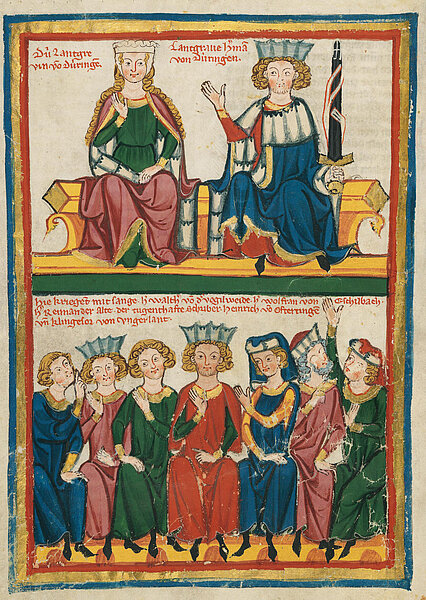 Dú Lantgre
vin vō Dúringē.
Lantgraue h̾mā
von Dúringen.
Hie krieget mit sange. h̾ walth̾ vō d̾ vogilweide. h̾ wolfran von Eschilbach.
h̾ Reinmar der alte. der tugenthafte schriber. heinrich vō Ofterringen.
vn̄ klingesor von vngerlant.